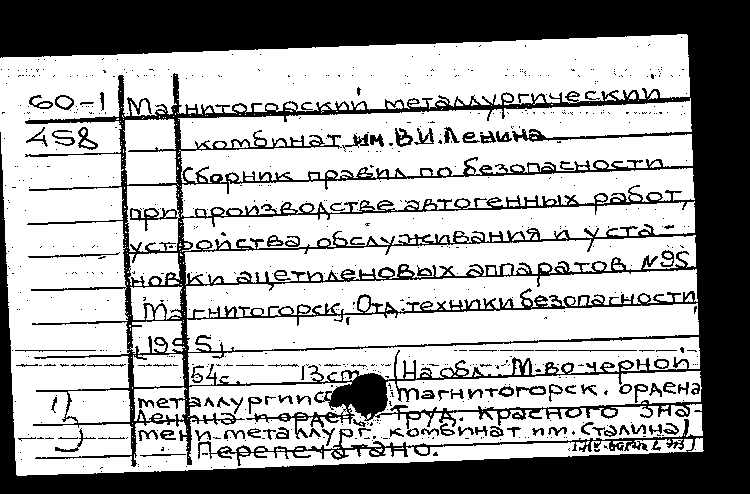 60-1 Магнитогорский металлургический
458 комбинат им. В.И. Ленина.
Сборник правил по безопасности
при производстве автогенных работ,
устройства, обслуживания и уста-
новки ацетиленовых аппаратов. №95
Магнитогорск, Отд. техники безопасности,
[1955].
54с. 13cm (На обл.: М-во черной
металлургии Магнитогорск. ордена
Ленина и орден Труд. Красного Зна-
мени металлург. комбинат им. Сталина)
Перепечатано.